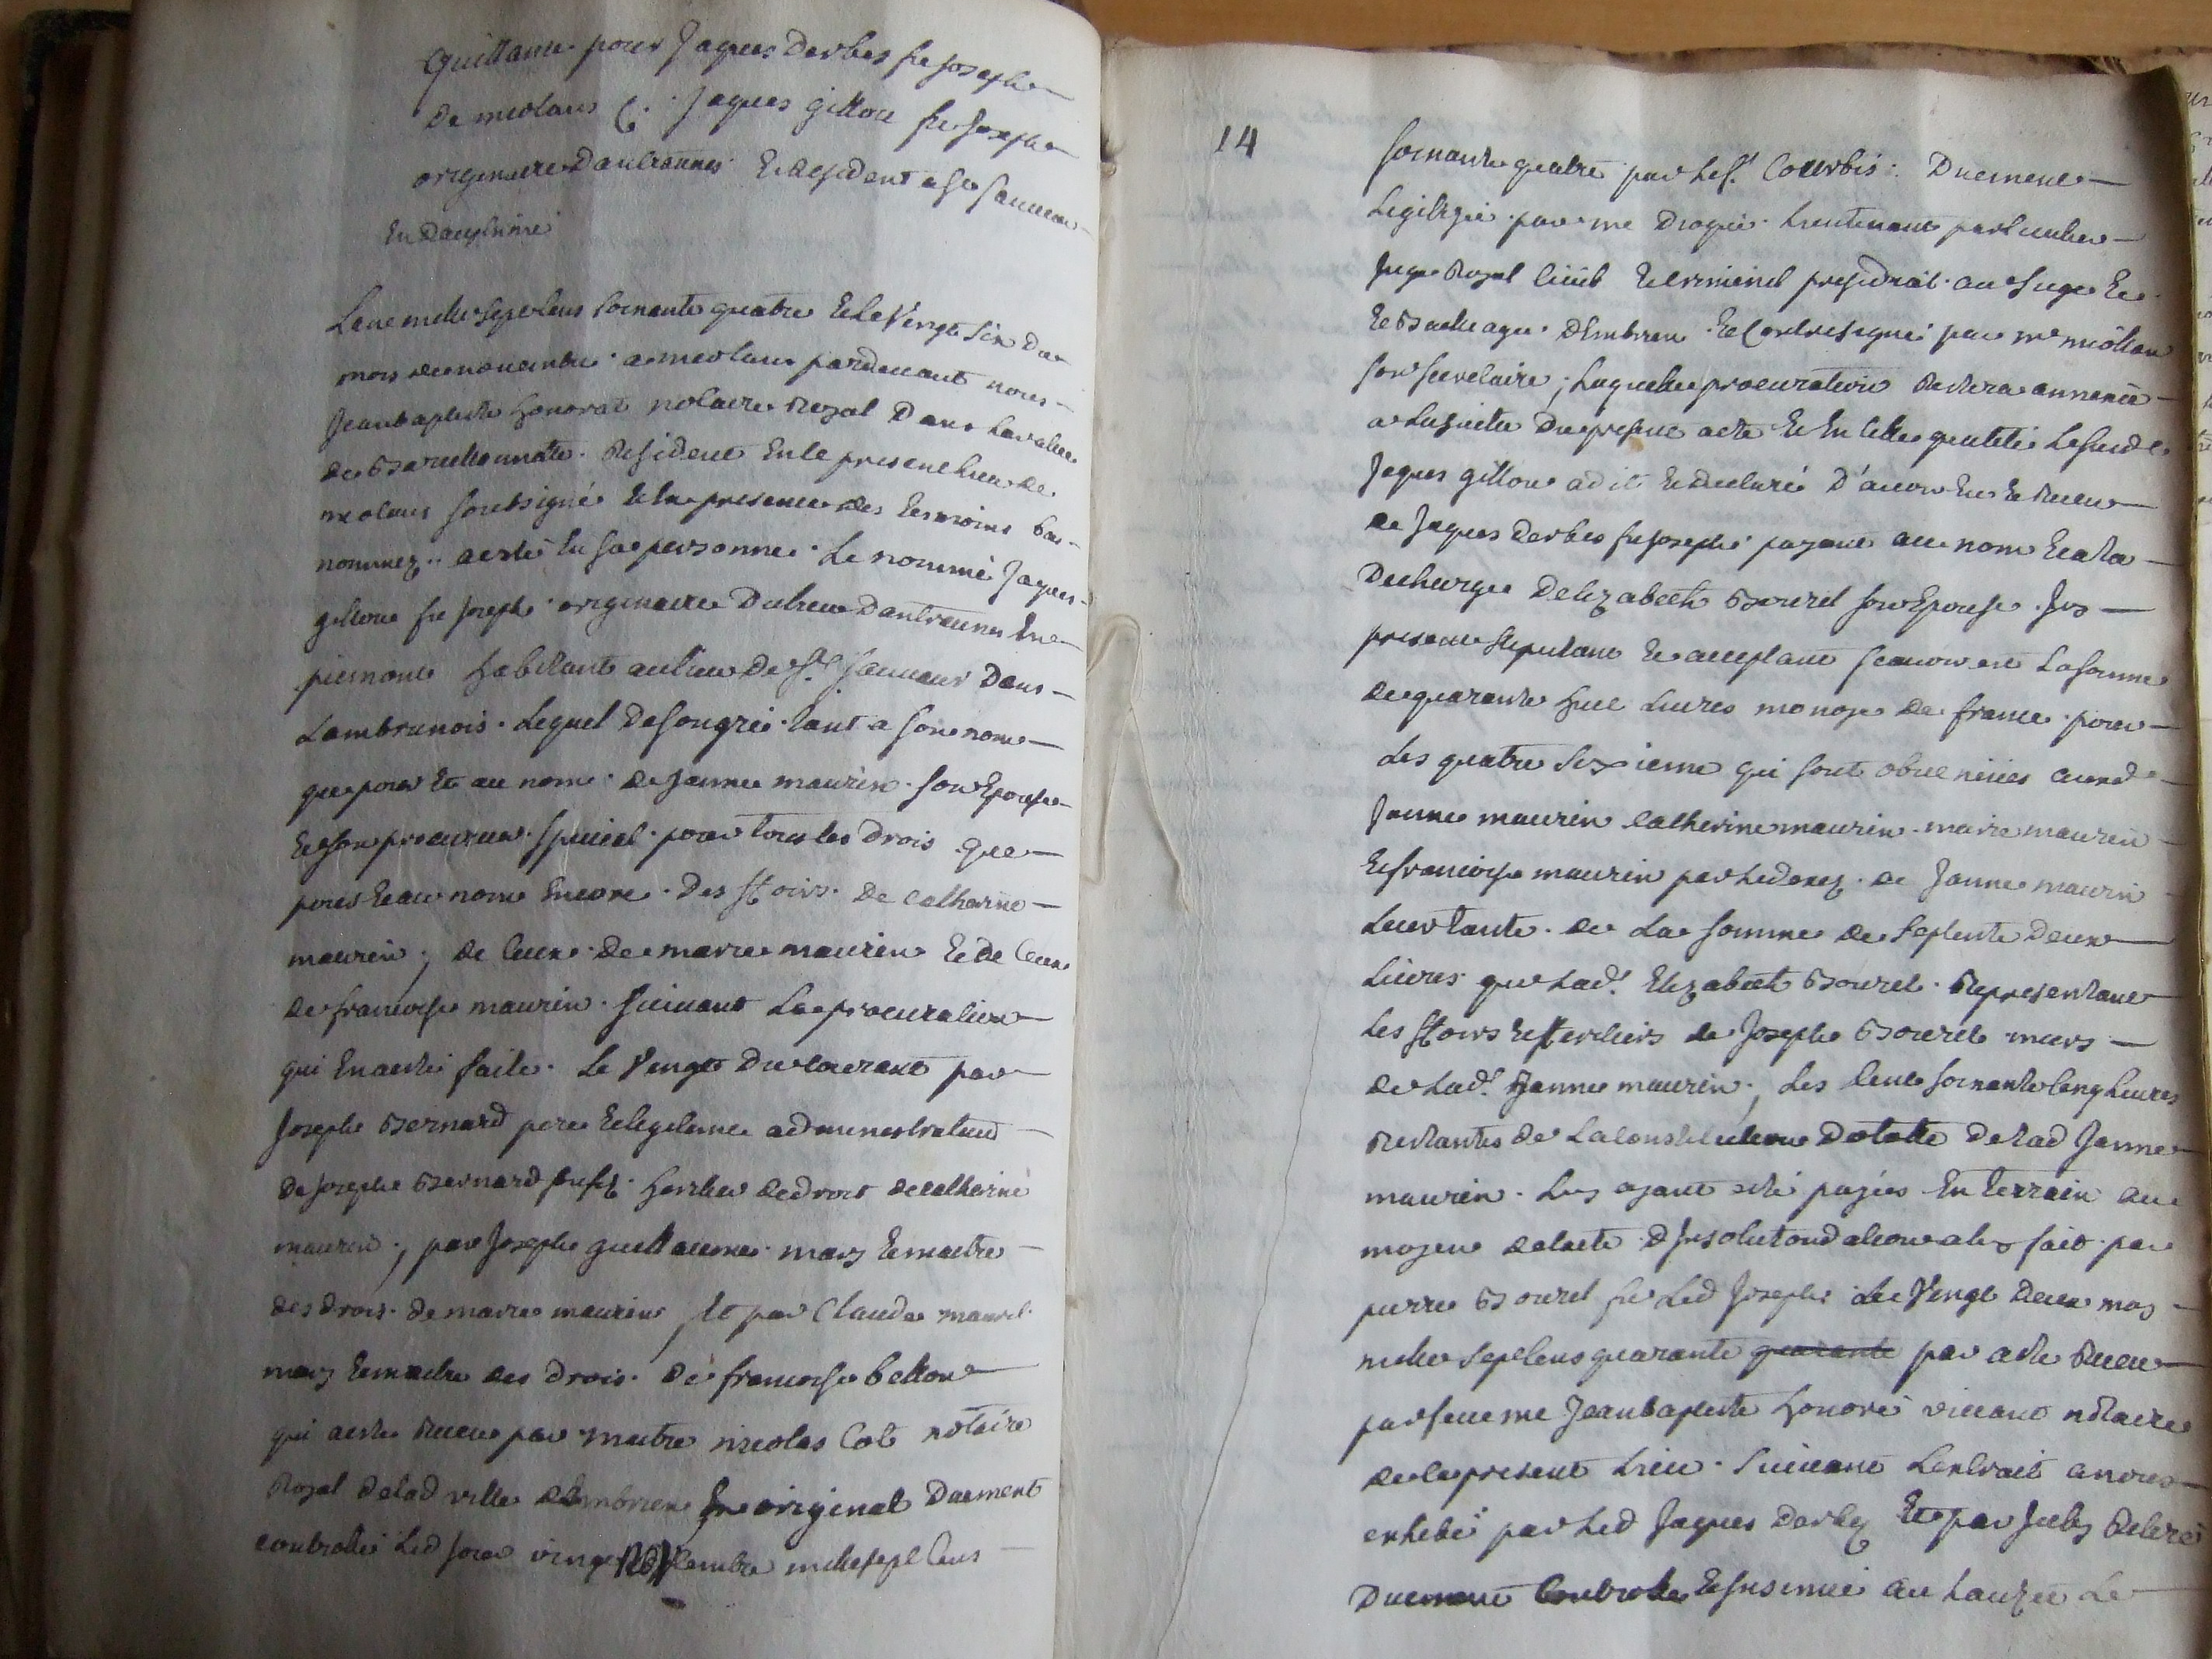 Quittance pour Jaques Derbes fu Joseph
de meolans C. Jaques gillou fu Joseph
originaire Dantraunes Et Residant a St Sauveur
En Dauphiné
Lan mille sept Cens soixante quatre Et Le Vingt Six Du
mois de novembre a meolans pardevant nous
Jean baptiste honorat notaire Royal Dans La vallée
de Barcelonnette Resident En le present lieu de
meolans soubsigné Et En presence des temoins bas
nommez a esté En sa personne Le nommé Jaques
gillou fu Joseph originaire Du lieu Dantraunes En
piemont habitant au lieu De St Sauveur Dans
Lambrunois Lequel De son gré tant a son nom
que pour Et au nom de Janne maurin son Epouse
Et son procureur special pour tous les Drois que
pour Et au nom Encore Des hoirs De Catherine
maurin ; de Ceux De marie maurin Et de Ceux
de francoise maurin suivant La procuration
qui En a esté faite Le Vingt Du Courant par
Joseph Bernard pere Et legitime administrateur
De Joseph Bernard son fis heritier de droit de Catherine
maurin ; par Joseph guillaume mary Et maitre
des drois de marie maurin Et par Claude maurel
mary Et maitre des Drois De francoise bellon
qui a esté Receue par maitre nicolas Cot notaire
Royal De lad ville dEmbrun En original Duement
controllé Led jour vingt novembre mille sept Cens
14
soixante quatre par Le sr Courbis Duement
Legalizé par me Drogué Lieutenant particulier
Juge Royal Civil Et criminel presidial au siege Et
Et Bailliage dEmbrun Et Contresigné par me miollan
son secretaire ; Laquelle procuration Restera annexée
a La suitte Du present acte Et En telle qualité Le susd
Jaques gillou a dit Et declaré D'avoir Eu Et Receu
de Jaques Derbes fu Joseph payant au nom Et a la
Decharge DElizabeth Bourel son Epouse Icy
present stipulant Et acceptant scavoir est La somme
de quarante huit Livres monoye de france pour
Les quatre sixieme qui sont obvenües auxd
Janne maurin Catherine maurin marie maurin
Et francoise maurin par Le decez de Janne maurin
Leur tante de La somme de septente Deux
Livres que Lad. Elizabeth Bourel Representant
Les hoirs Et heritiers de Joseph Bourel mary
de Lad. Janne maurin ; Les Cent soixante Cinq Livres
Restantes de La Constitution Dotale De lad Janne
maurin Luy ayant esté payées En terrain au
moyen de lacte dInsolutondation a luy fait par
pierre Bourel fu Led Joseph Le Vingt Deux may
mille sept Cens quarante quarante par acte Receu
par feu me Jean baptiste honoré vivant notaire
de Le present Lieu suivant Lextrait a nous
exhibé par Led Jaques Derbez Et par Icelluy Retiré
Duement Controllé Et Insinué au Lauzet Le